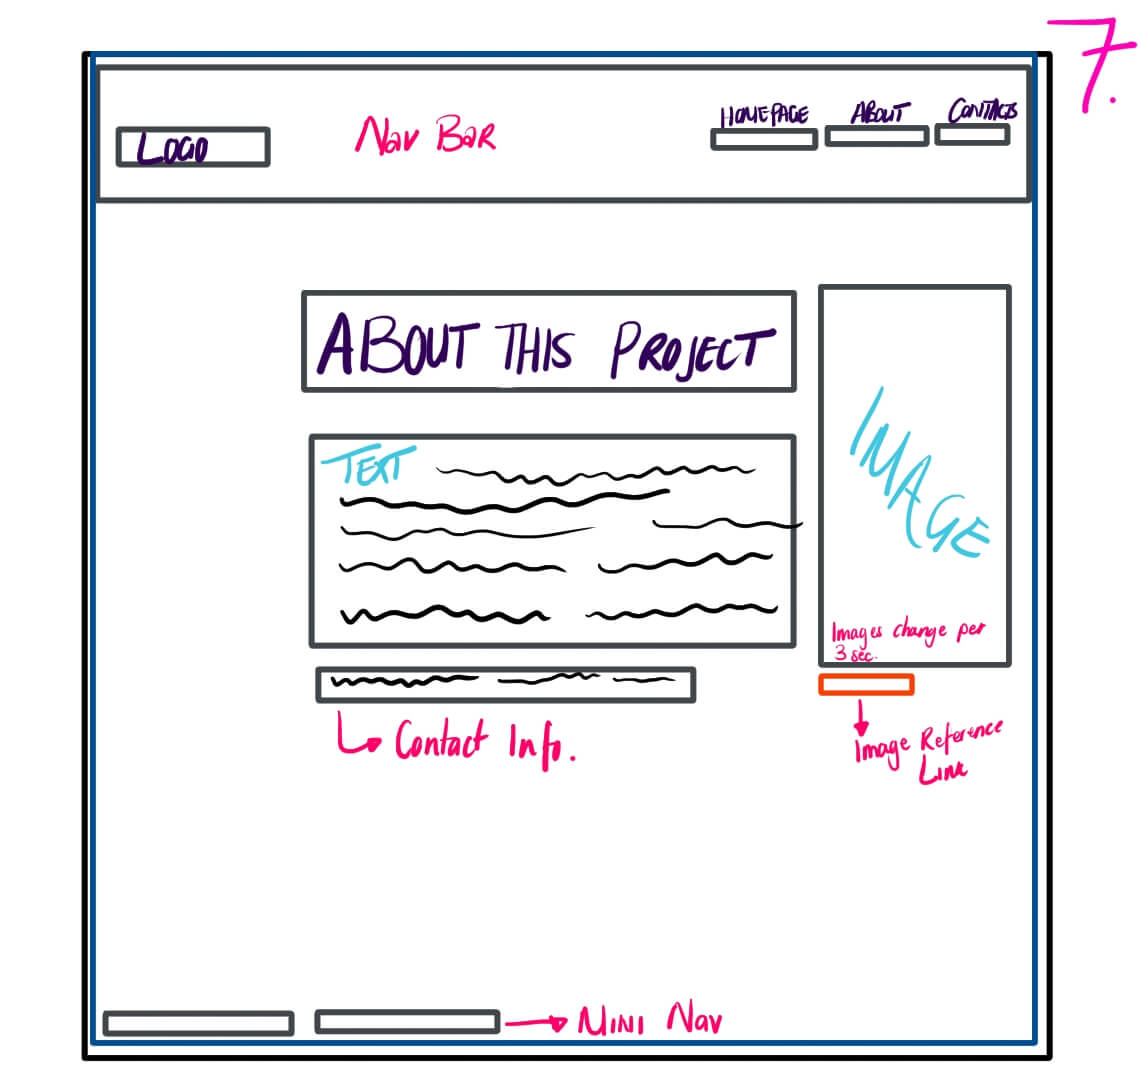 7.
LOGO
NAV BAR
HOMEPAGE
ABOUT
CONTACTS
ABOUT THIS PROJECT
TEXT
IMAGE
Images change per
3 sec.
Contact Info.
Image Reference
Link
MINI NAV